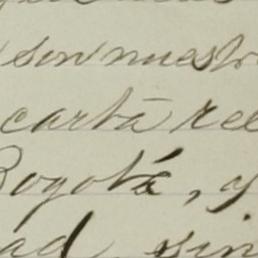 son nuestr
carta re
Bogotá, y
ad sin